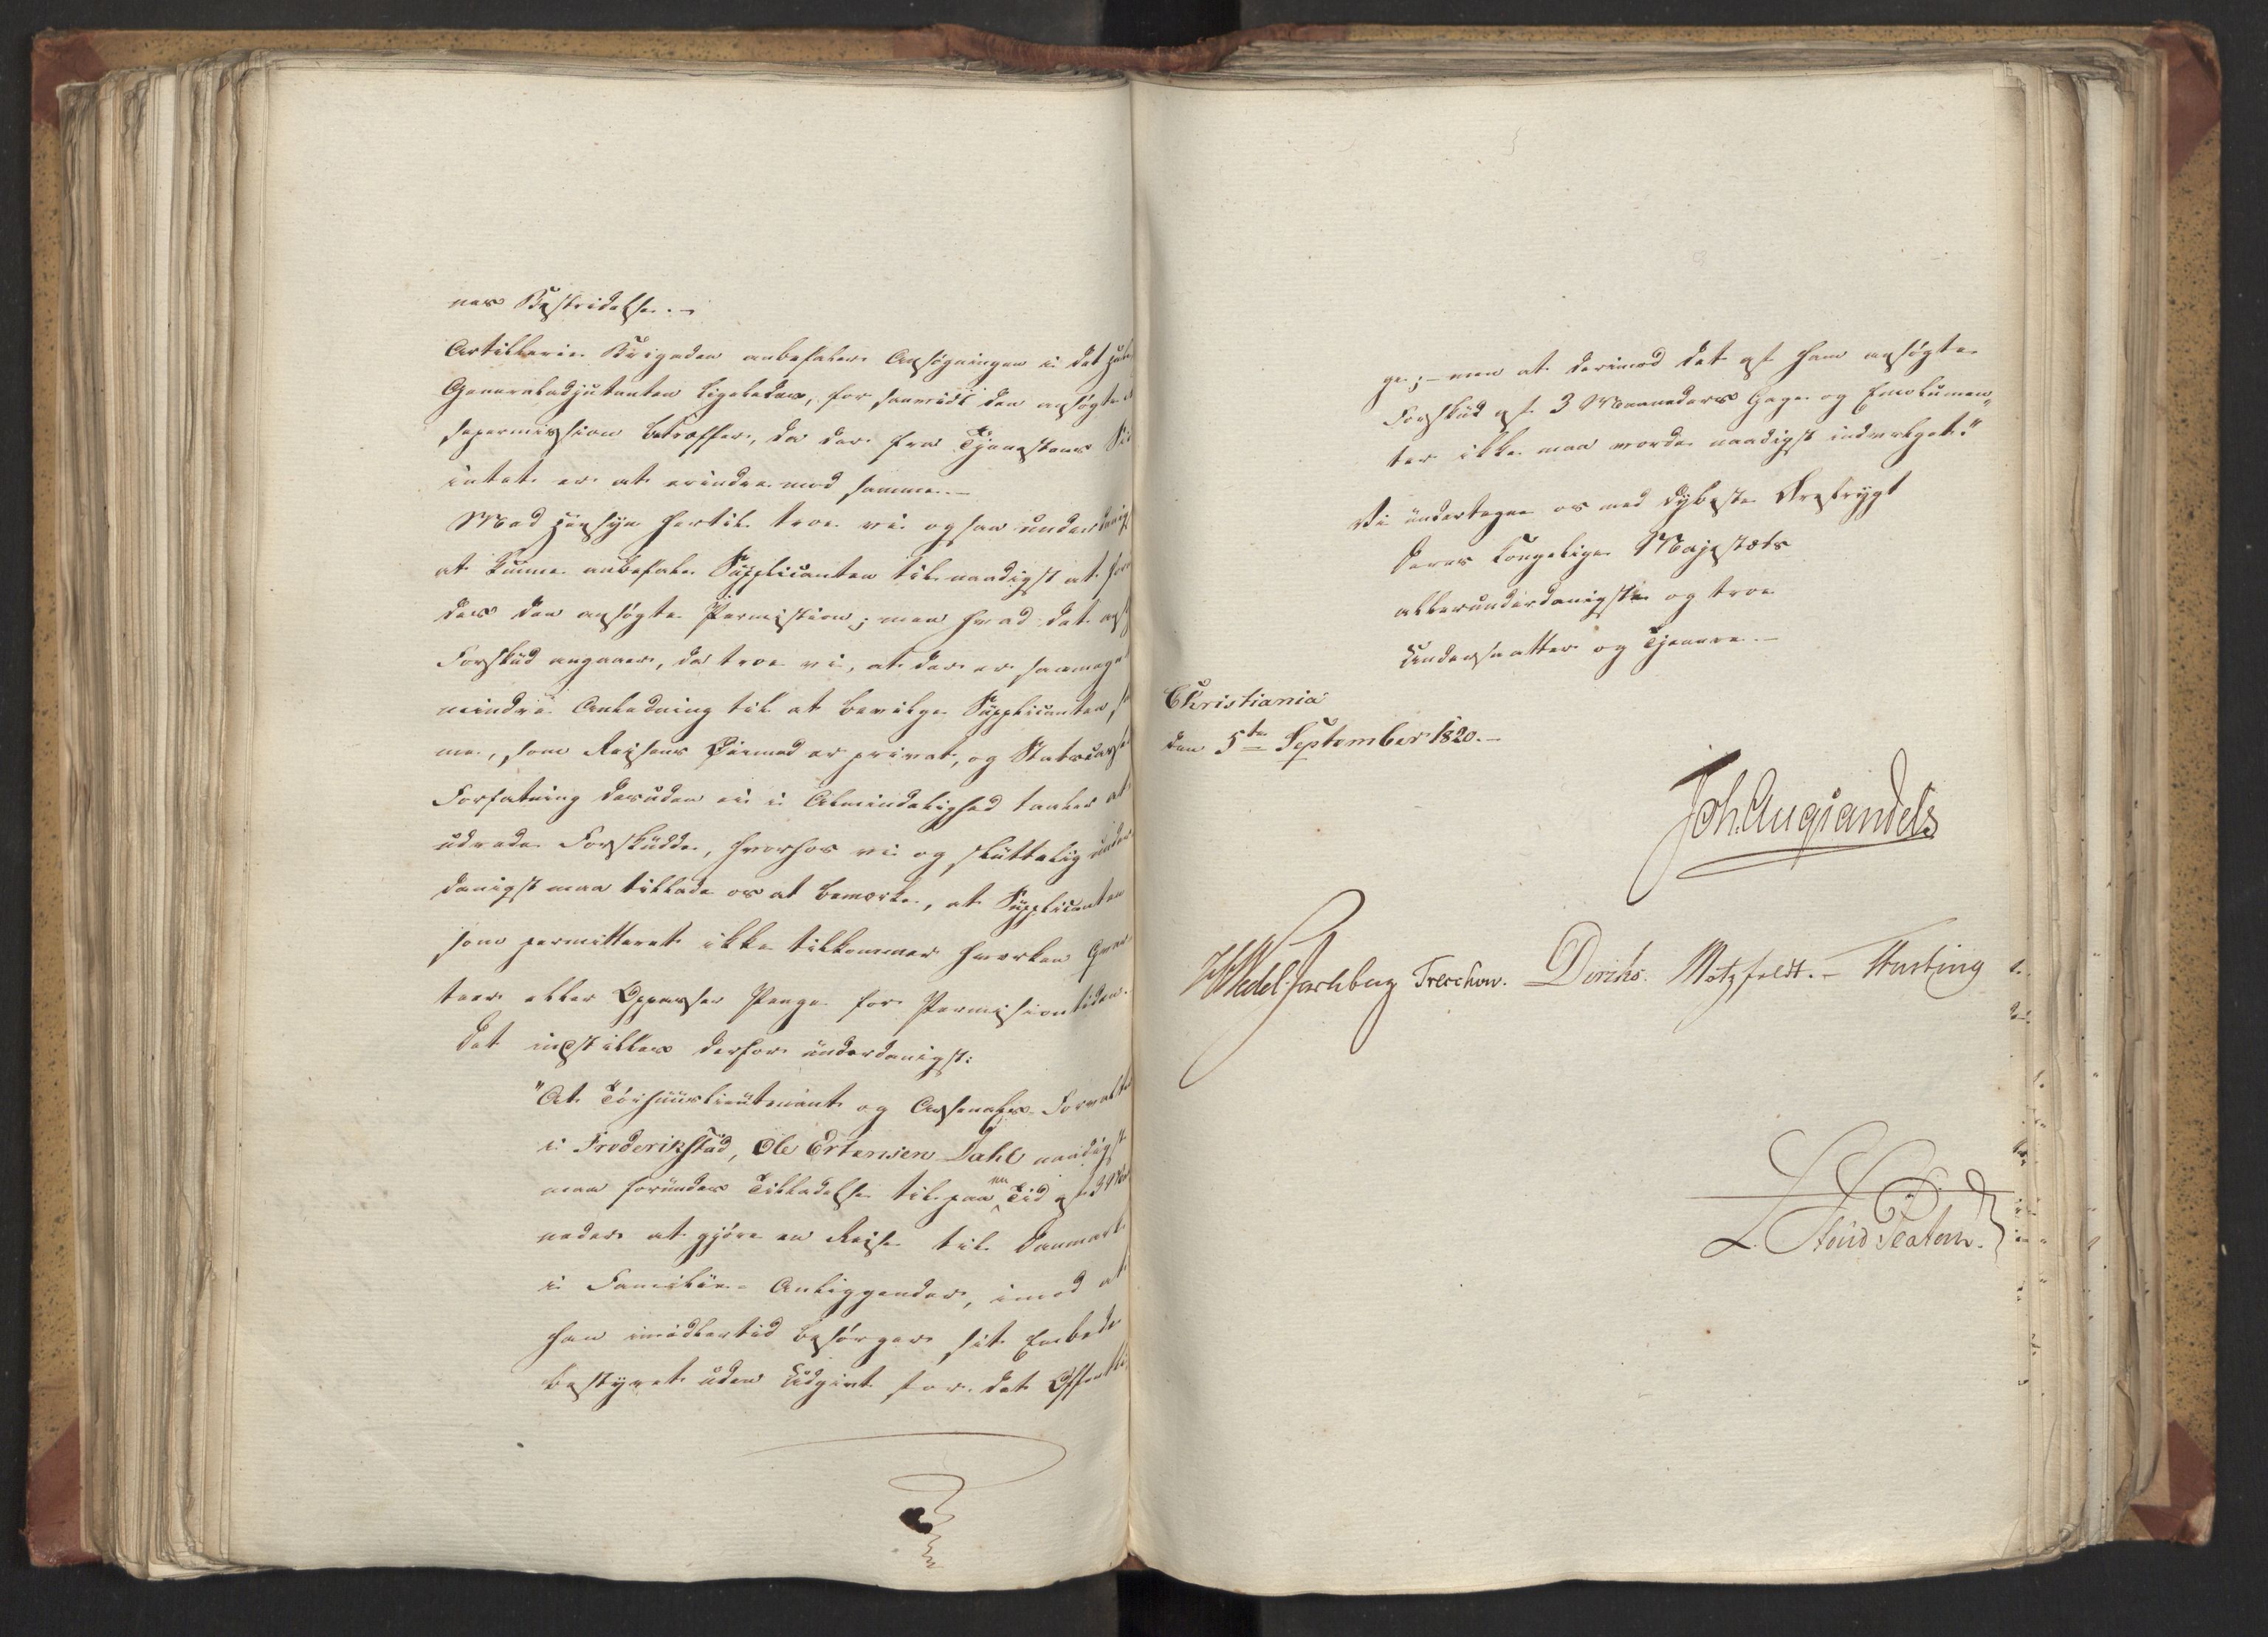 nes Bestridelse. –
Artillerie Brigaden anbefaler Ansøgningen i det hele
Generaladjutanten ligeledes, for saavidt den ansøgte
sepermission betræffer, da der fra Tjenestens Si
intet er at erindre mod samme. –
Med Hensyn hertil troe vi ogsaa underdanigst
at kunne anbefale Supplicanten til naadigst at for
des den ansøgte Permission; men hvad det ansø
Forskud angaaer, da troe vi, at der er saameget
mindre Anledning til at bevilge Supplicanten sa
me, som Reisens Øiemed er privat, og Statscassens
Forfatning desuden ei i Almindelighed taaler at
udrede Forskudde, hvorhos vi og sluttelig under
danigst maa tillade os at bemærke, at Supplicanten
som permitteret ikke tilkommer hverken Qvar
teer eller Oppasser Penge for Permissionstiden.
Det indstilles derfor underdanigst:
"At Töihuuslieutenant og Arsenals-Forvalter
i Frederikstad, Ole Ertensen Dahl naadigst
maa forundes Tilladelse til paa en Tid af 3 Maa
neder at gjöre en Reise til Danmark
i Familie-Anliggender, imod at
han imidlertid besörger sit Embede
bestyret uden Udgivt for det Offentli
ge; – men at derimod det af ham ansøgte
Forskud af 3 Maaneders Gage og Emolumen„
ter ikke maa vorde naadigst indvilget."
Vi undertegne os med dybeste Ærefrygt
Deres Kongelige Majestæts
allerunderdanigste og troe
Undersaatter og Tjenere. –
Christiania
den 5te September 1820. –
Joh. Aug Sandels
HWedel Jarlsberg Treschow. Diriks. Motzfeldt. – Fasting
L. Stoud Platou.